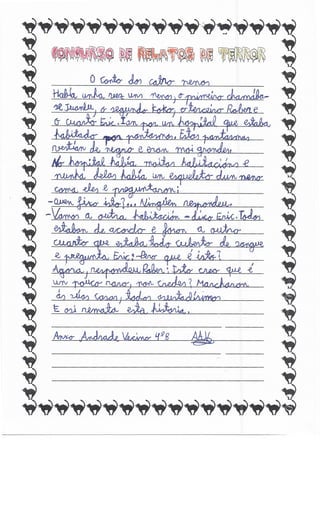 CONCURSO DE RELATOS DE TERROR
O Conto dos catro nenos
Había unha vez uns nenos, o primeiro chamába-
se Juanlu, o segundo Koko, o terceiro Robere
o cuarto Eric. Fan por un hospital que estaba
habitado por pantasmas. Estas pantasmas
vestían de negro e eran moi grandes
No hospital había moitas habitacións e
nunha delas había un esqueleto dun neno
coma eles e preguntaron:
-quen fixo isto?... Ninguén respondeu.
-Vamos a outra habitación -dixo Eric. Todos
estaban de acordo e foron a outro
cuarto que estaba todo cuberto de sangue
e pregunta Eric: -Pero que é isto?
Agora, respondeu Rober: Isto creo que é
un pouco raro, non credes? Marcharon
ás súas casas, todos asustadísimos
E así remata esta historia.
Anxo Andrade Vecino 4ºB